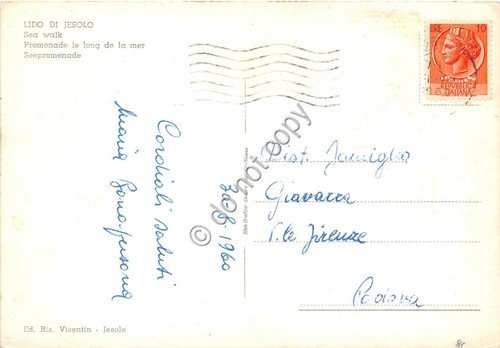 LIDO DI JESOLO
Sea walk
Promenade le long de la mer
Seepromenade
LIRE 10
REPVBBLICA
ITALIANA
Cordiali saluti
Maria
30-8-1960
Dist. Famiglia
Giavarra
V.le Firenze
Padova
do not copy
Ed. Ris. Visentin - Jesolo